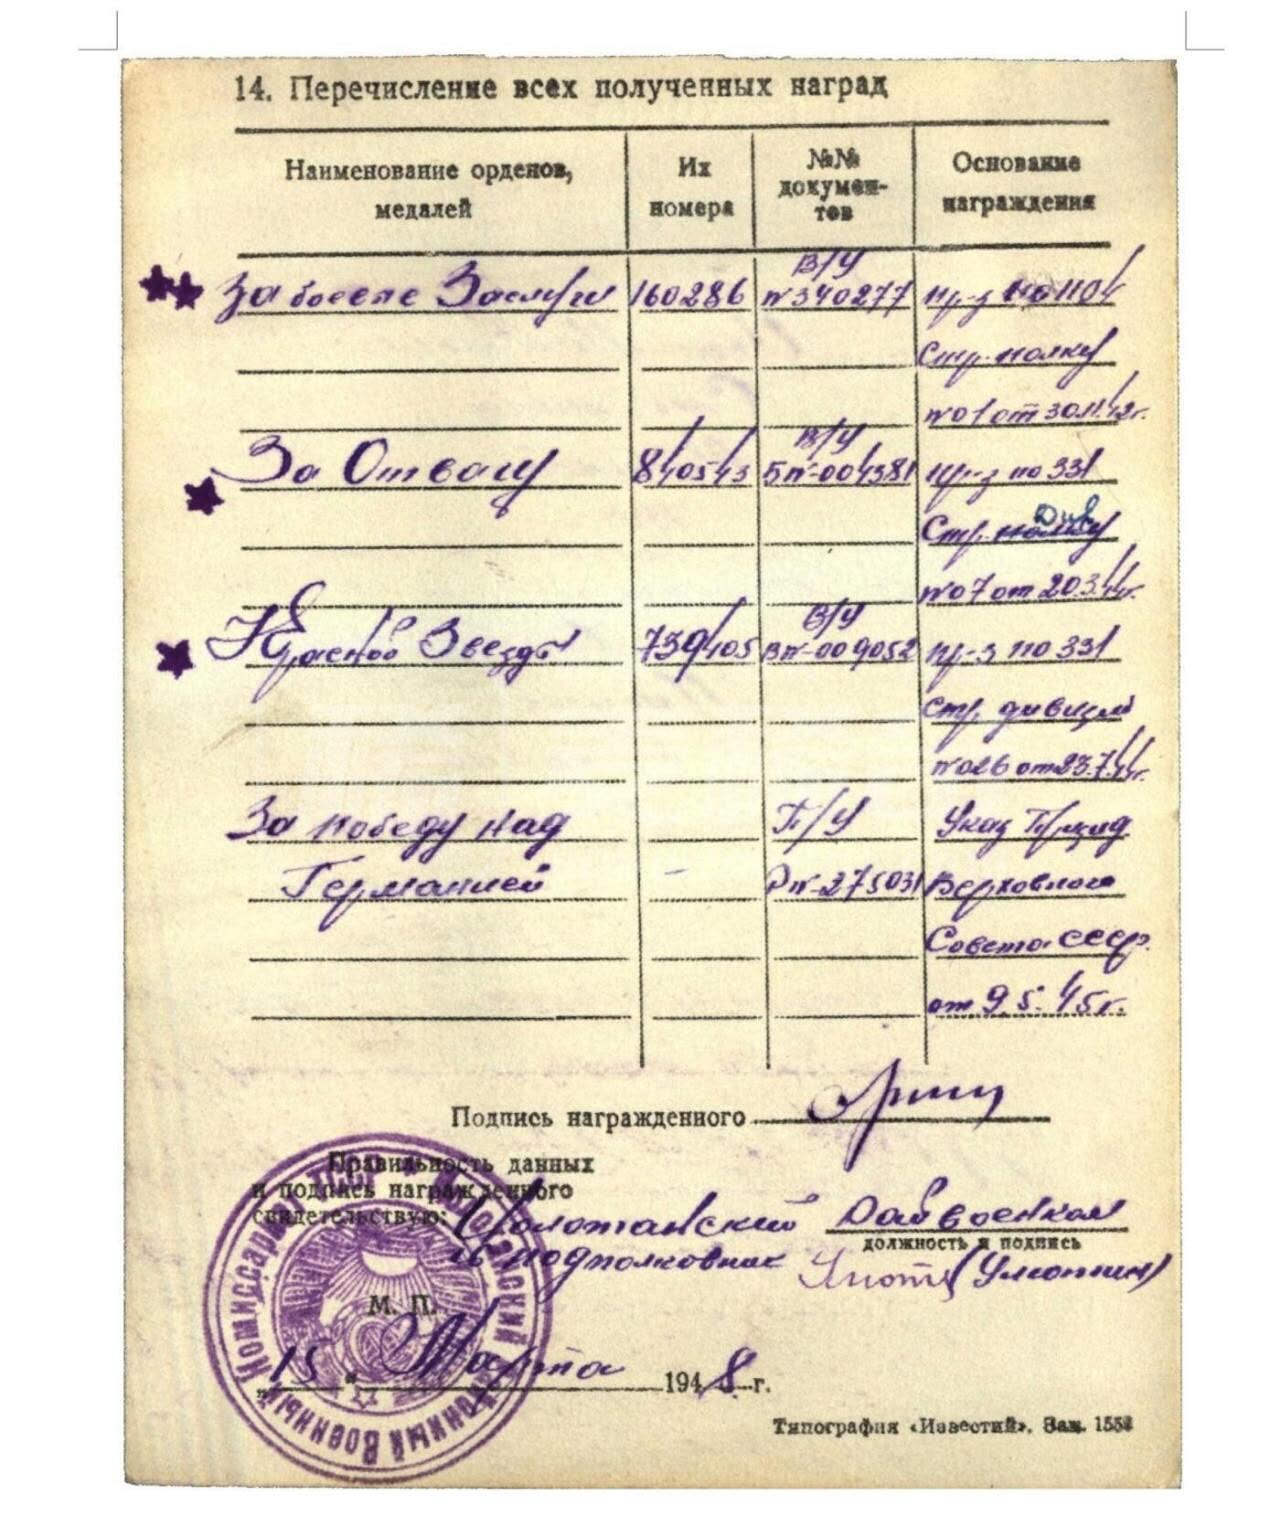 14. Перечисление всех полученных наград
Наименование орденов, медалей
Их номера
№№ документов
Основание награждения
За боевые Заслуги 160286 В/У №340277 пр-з по 1104
Стр. полку
№01 от 30.11.42г.
За Отвагу 840543 В/У Б№-004381 пр-з по 331
Стр. полку Див
№07 от 20.3.44г.
Красной Звезды 739405 В/У В№-009052 пр-з по 331
стр. дивизии
№026 от 23.7.44г.
За победу над П/У Указ Презид
Германией - №-275031 Верховного
Совета СССР.
от 9.5.45г.
Подпись награжденного
Правильность данных
и подпись награжденного
свидетельствую: Иолотанский Райвоенком
подполковник
должность и подпись
М. П.
„15" Марта 1948 г.
Типография «Известий». Зак.
Комиссариат
Военный